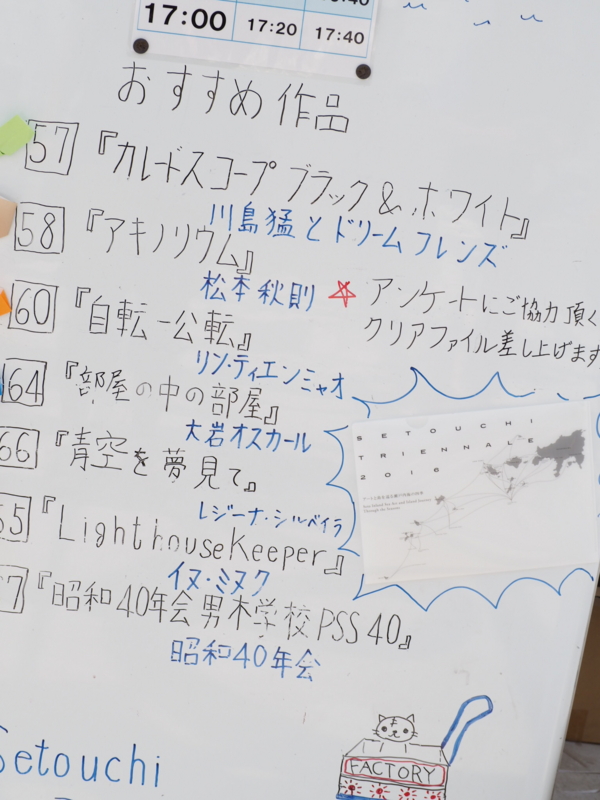 17:00 17:20 17:40
おすすめ作品
57 『カレードスコープ ブラック & ホワイト』
川島猛とドリームフレンズ
58 『アキノリウム』
松本秋則
☆ アンケートにご協力頂く
クリアファイル差し上げます
60 『自転-公転』
リン・ティエンミャオ
64 『部屋の中の部屋』
大岩オスカール
66 『青空を夢見て』
レジーナ・シルベイラ
『LighthouseKeeper』
イヌ・ミヌク
『昭和40年会男木学校PSS40』
昭和40年会
SETOUCHI
TRIENNALE
2016
Setouchi
FACTORY